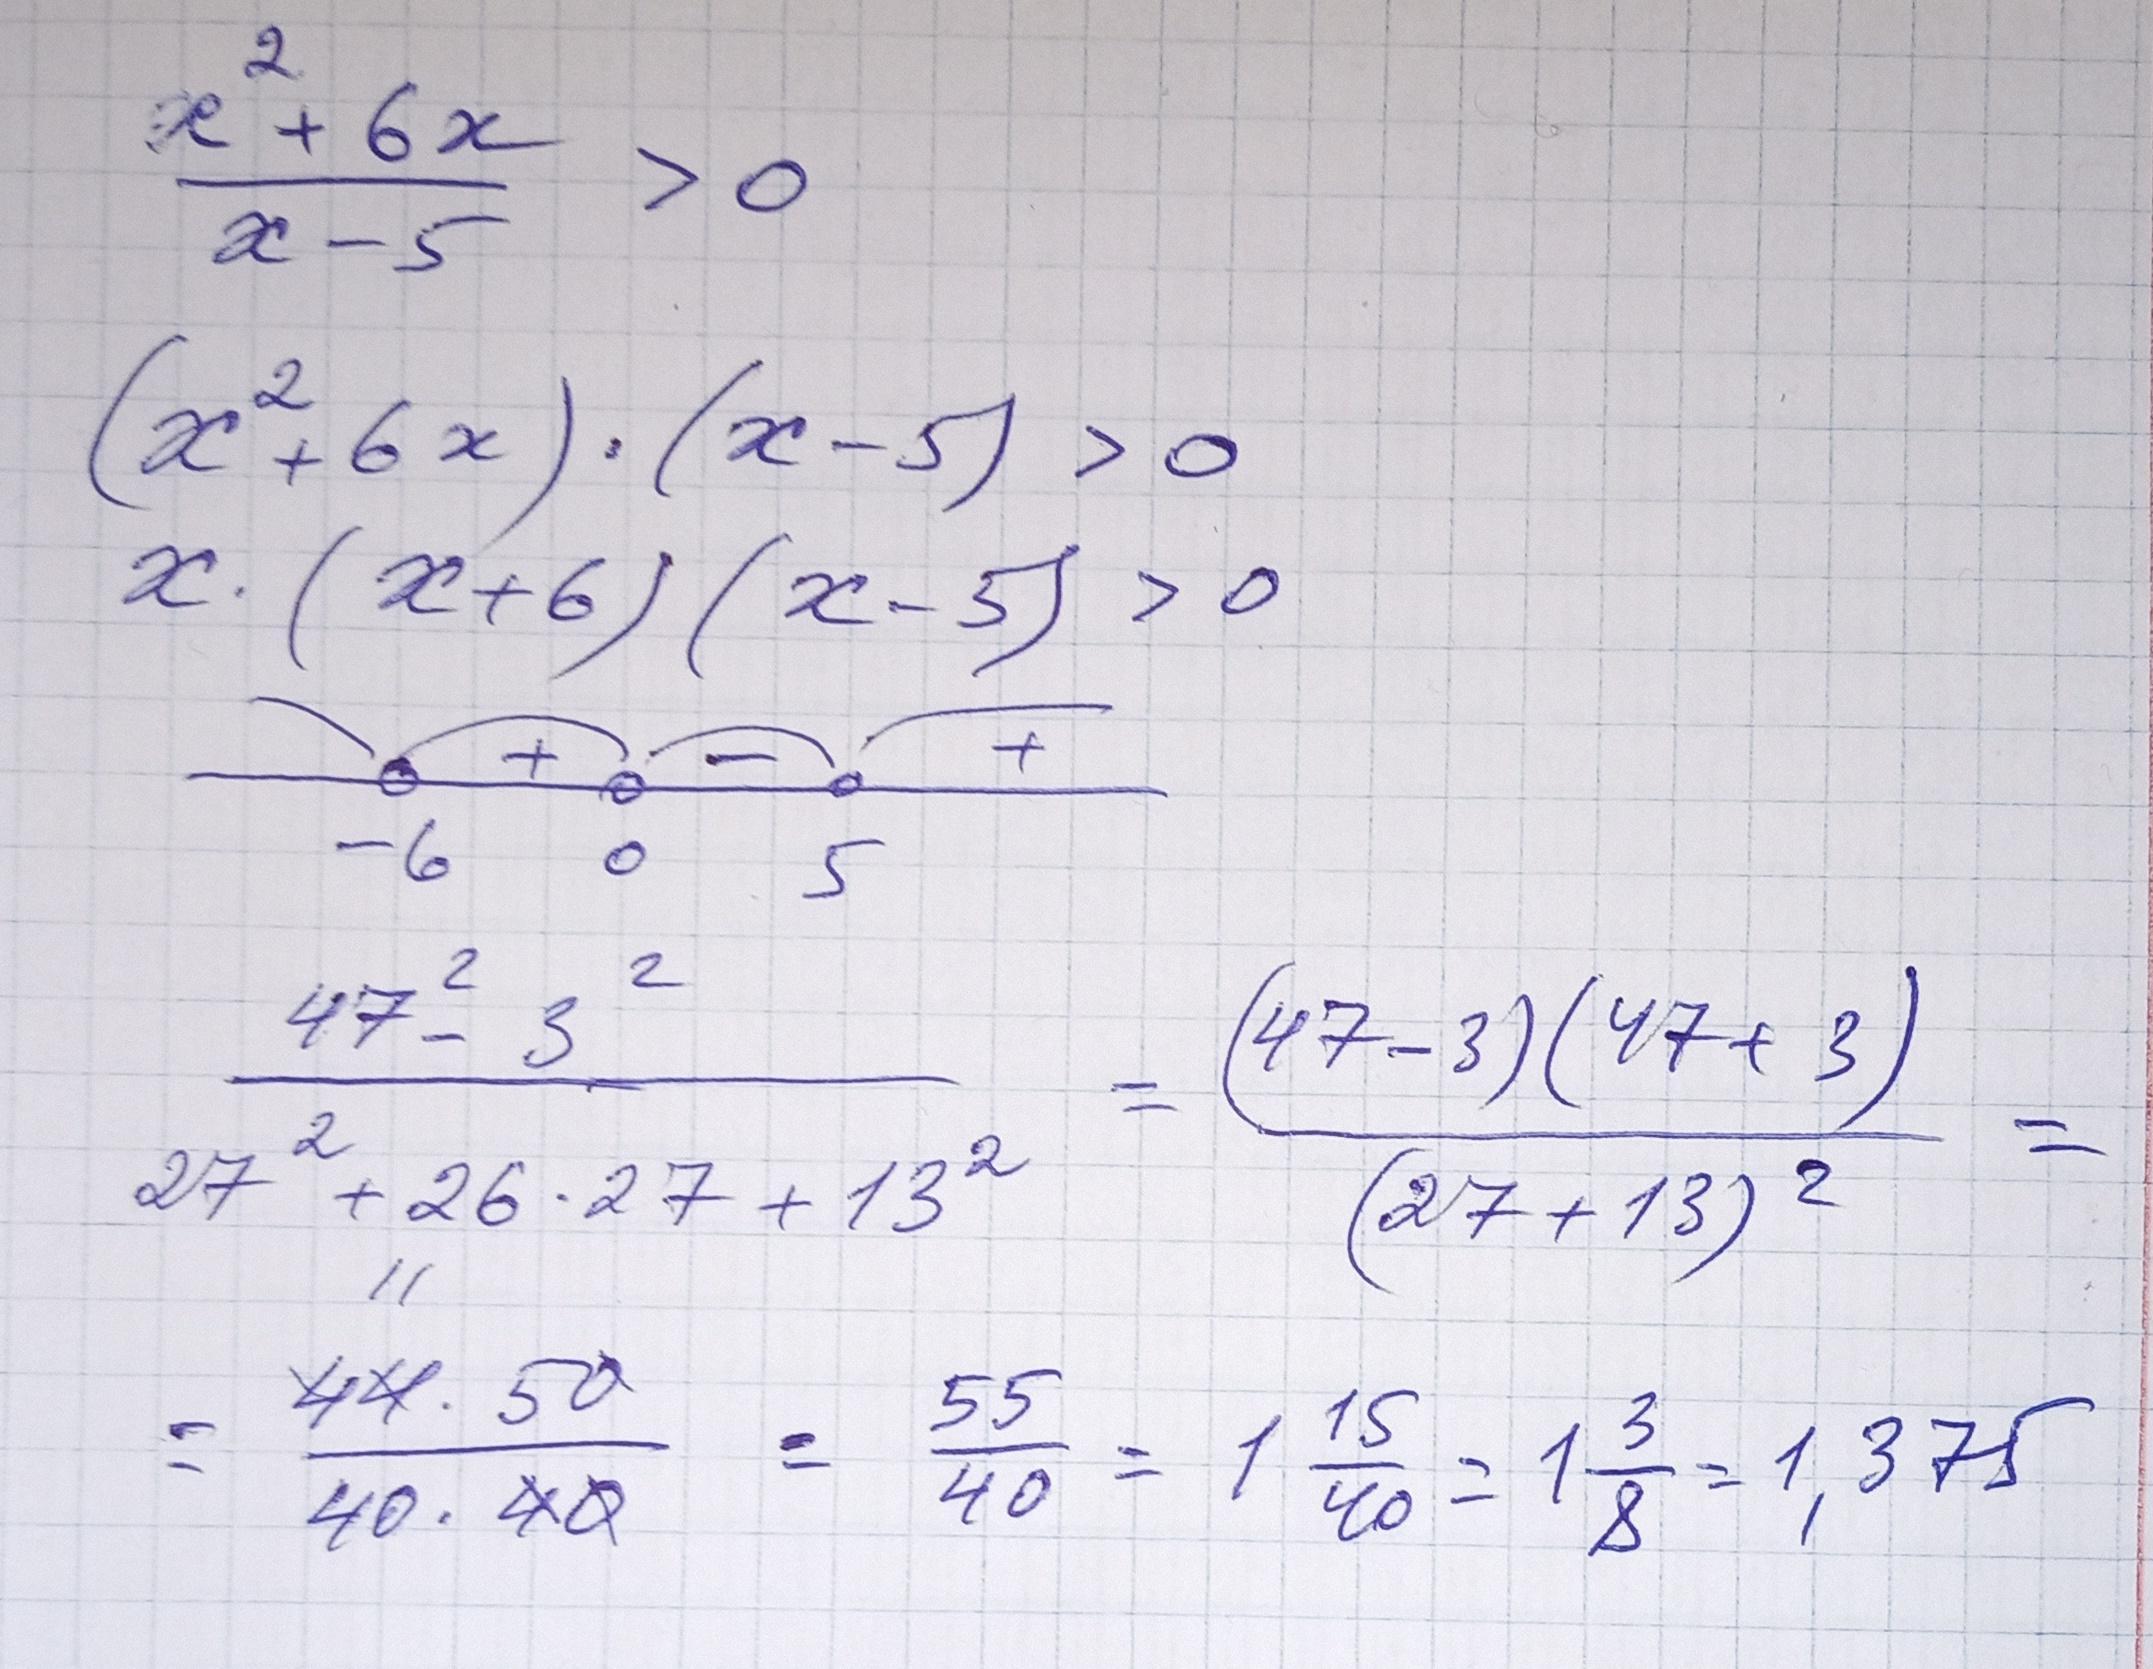 x² + 6x
x - 5 > 0
(x² + 6x) · (x - 5) > 0
x · (x + 6) (x - 5) > 0
+ - +
-6 0 5
47² - 3² = (47 - 3)(47 + 3) =
27² + 26 · 27 + 13² (27 + 13)²
||
= 44 · 50 / 40 · 40 = 55/40 = 1 15/40 = 1 3/8 = 1,375